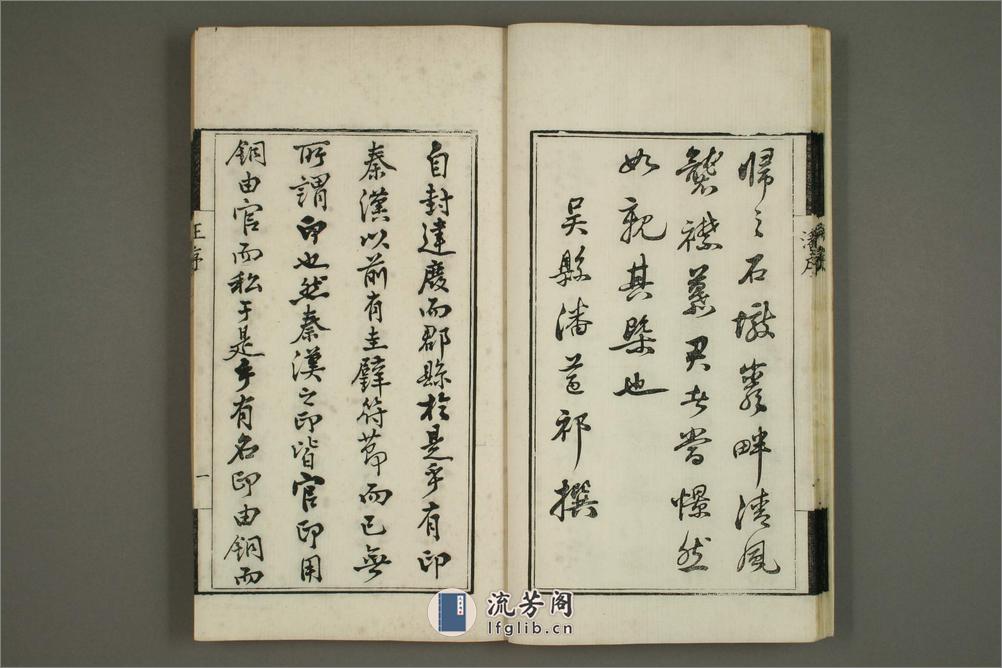 歸之石墩客畔清風
襲襟慕君者當憬然
如親其槩也
吳縣潘遵祁撰
潘序
自封建廢而郡縣於是乎有印
秦漢以前有圭璧符節而已無
所謂印也然秦漢之印皆官印用
銅由官而私于是乎有名印由銅而
王序
一
流芳阁
lfglib.cn